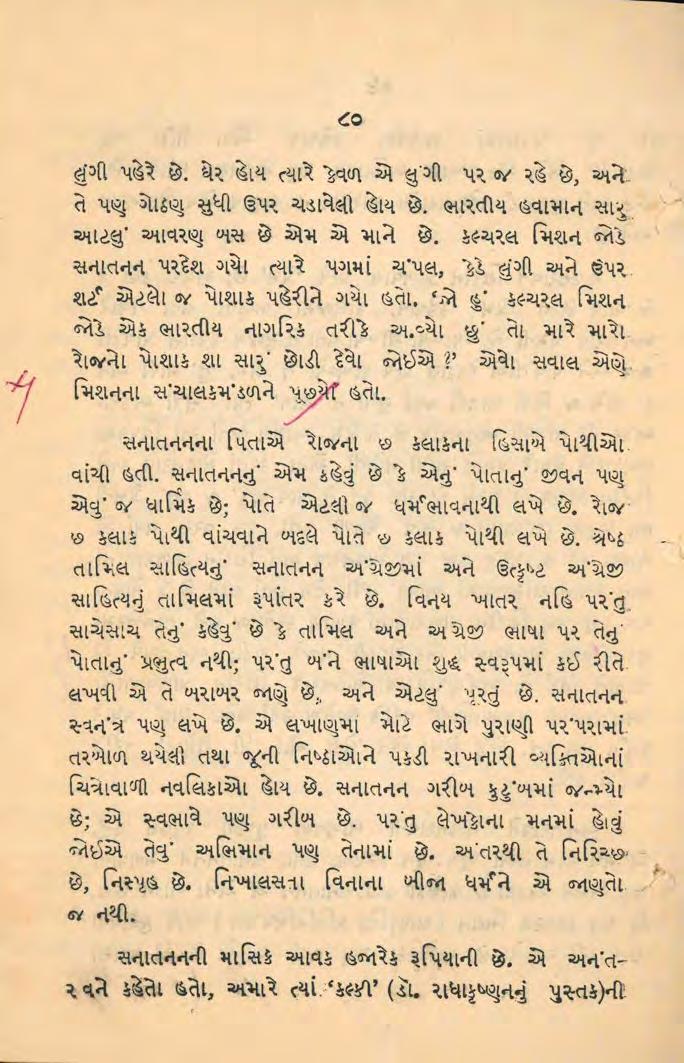 ૮૦
લુંગી પહેરે છે. ઘેર હોય ત્યારે કેવળ એ લુંગી પર જ રહે છે, અને
તે પણ ગોઠણ સુધી ઉપર ચડાવેલી હોય છે. ભારતીય હવામાન સારુ
આટલું આવરણ બસ છે એમ એ માને છે. કલ્ચરલ મિશન જોડે
સનાતનન પરદેશ ગયો ત્યારે પગમાં ચંપલ, કેડે લુંગી અને ઉપર
શર્ટ એટલો જ પોશાક પહેરીને ગયો હતો. ‘જો હું કલ્ચરલ મિશન
જોડે એક ભારતીય નાગરિક તરીકે આવ્યો છું તો મારે મારો
રોજનો પોશાક શા સારું છોડી દેવો જોઈએ ?’ એવો સવાલ એણે
મિશનના સંચાલકમંડળને પૂછયો હતો.
સનાતનનના પિતાએ રોજના ૭ કલાકના હિસાબે પોથીઓ
વાંચી હતી. સનાતનનનું એમ કહેવું છે કે એનું પોતાનું જીવન પણ
એવું જ ધાર્મિક છે; પોતે એટલી જ ધર્મભાવનાથી લખે છે. રોજ
૭ કલાક પોથી વાંચવાને બદલે પોતે ૭ કલાક પોથી લખે છે. શ્રેષ્ઠ
તામિલ સાહિત્યનું સનાતનન અંગ્રેજીમાં અને ઉત્કૃષ્ટ અંગ્રેજી
સાહિત્યનું તામિલમાં રૂપાંતર કરે છે. વિનય ખાતર નહિ પરંતુ
સાચેસાચ તેનું કહેવું છે કે તામિલ અને અંગ્રેજી ભાષા પર તેનું
પોતાનું પ્રભુત્વ નથી; પરંતુ બંને ભાષાઓ શુદ્ધ સ્વરૂપમાં કઈ રીતે
લખવી એ તે બરાબર જાણે છે, અને એટલું પૂરતું છે. સનાતનન
સ્વતંત્ર પણ લખે છે. એ લખાણમાં મોટે ભાગે પુરાણી પરંપરામાં
તરબોળ થયેલી તથા જૂની નિષ્ઠાઓને પકડી રાખનારી વ્યક્તિઓનાં
ચિત્રોવાળી નવલિકાઓ હોય છે. સનાતનન ગરીબ કુટુંબમાં જન્મ્યો
છે; એ સ્વભાવે પણ ગરીબ છે. પરંતુ લેખકોના મનમાં હોવું
જોઈએ તેવું અભિમાન પણ તેનામાં છે. અંતરથી તે નિરિચ્છ
છે, નિસ્પૃહ છે. નિખાલસતા વિનાના બીજા ધર્મને એ જાણતો
જ નથી.
સનાતનનની માસિક આવક હજારેક રૂપિયાની છે. એ અનંત-
રવને કહેતો હતો, અમારે ત્યાં ‘કલ્કી’ (ડૉ. રાધાકૃષ્ણનનું પુસ્તક)ની